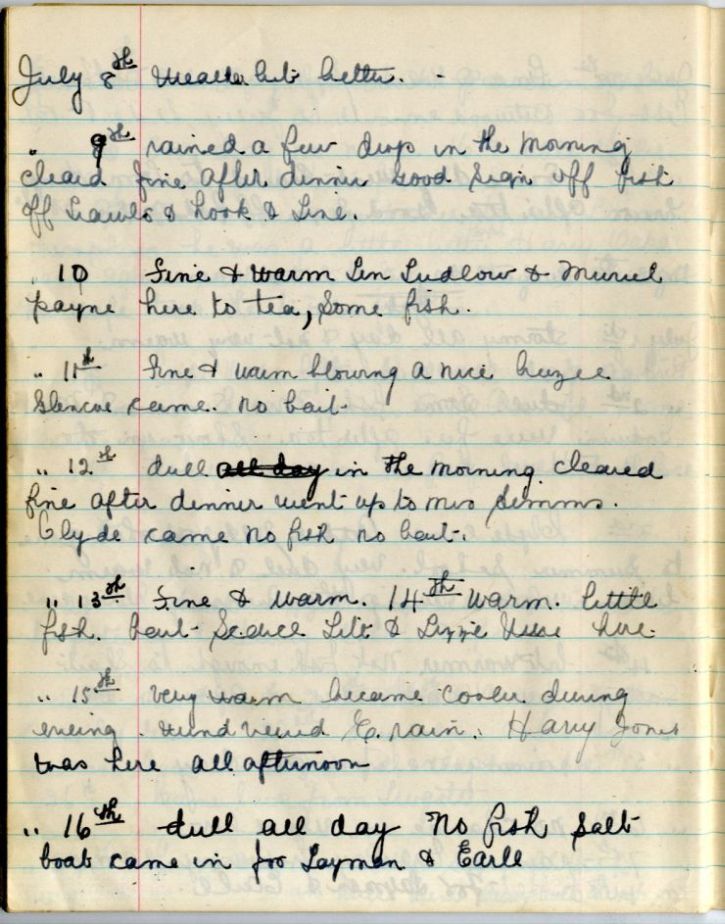 July 8th Weather bit better. -
" 9th rained a few drop in the morning
cleard fine after dinner good sign off fish
off Trawls & hook & Line.
" 10 Fine & warm Len Ludlow & Muriel
payne here to tea, Some fish.
" 11th Fine & warm blowing a nice breeze
Glencoe came. no bait
" 12th dull all day in the morning cleared
fine after dinner went up to mrs Simms.
Clyde came no fish no bait.
" 13th Fine & warm. 14th warm. little
fish. bait Scarce & Lizzie here.
" 15th very warm became cooler during
evening. Wind E. rain. Harry Jones
was here all afternoon
" 16th dull all day No fish Salt
boat came in for Layman & Earle